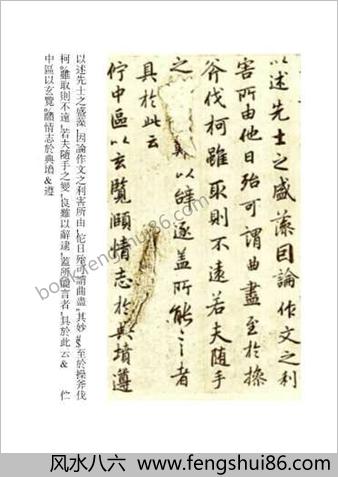 以述先士之盛藻因論作文之利
害所由他日殆可謂曲盡至於操
斧伐柯雖取則不遠若夫随手
之難以辝逐盖所能言者
具於此云
佇中區以玄覽頤情志於典墳遵
以述先士之盛藻，因論作文之利害所由，佗日殆可謂曲盡其妙，至於操斧伐
柯，雖取則不遠，若夫隨手之變，良難以辭逮，蓋所能言者，具於此云& 佇
中區以玄覽，頤情志於典墳&遵
风水八六 www.fengshui86.com